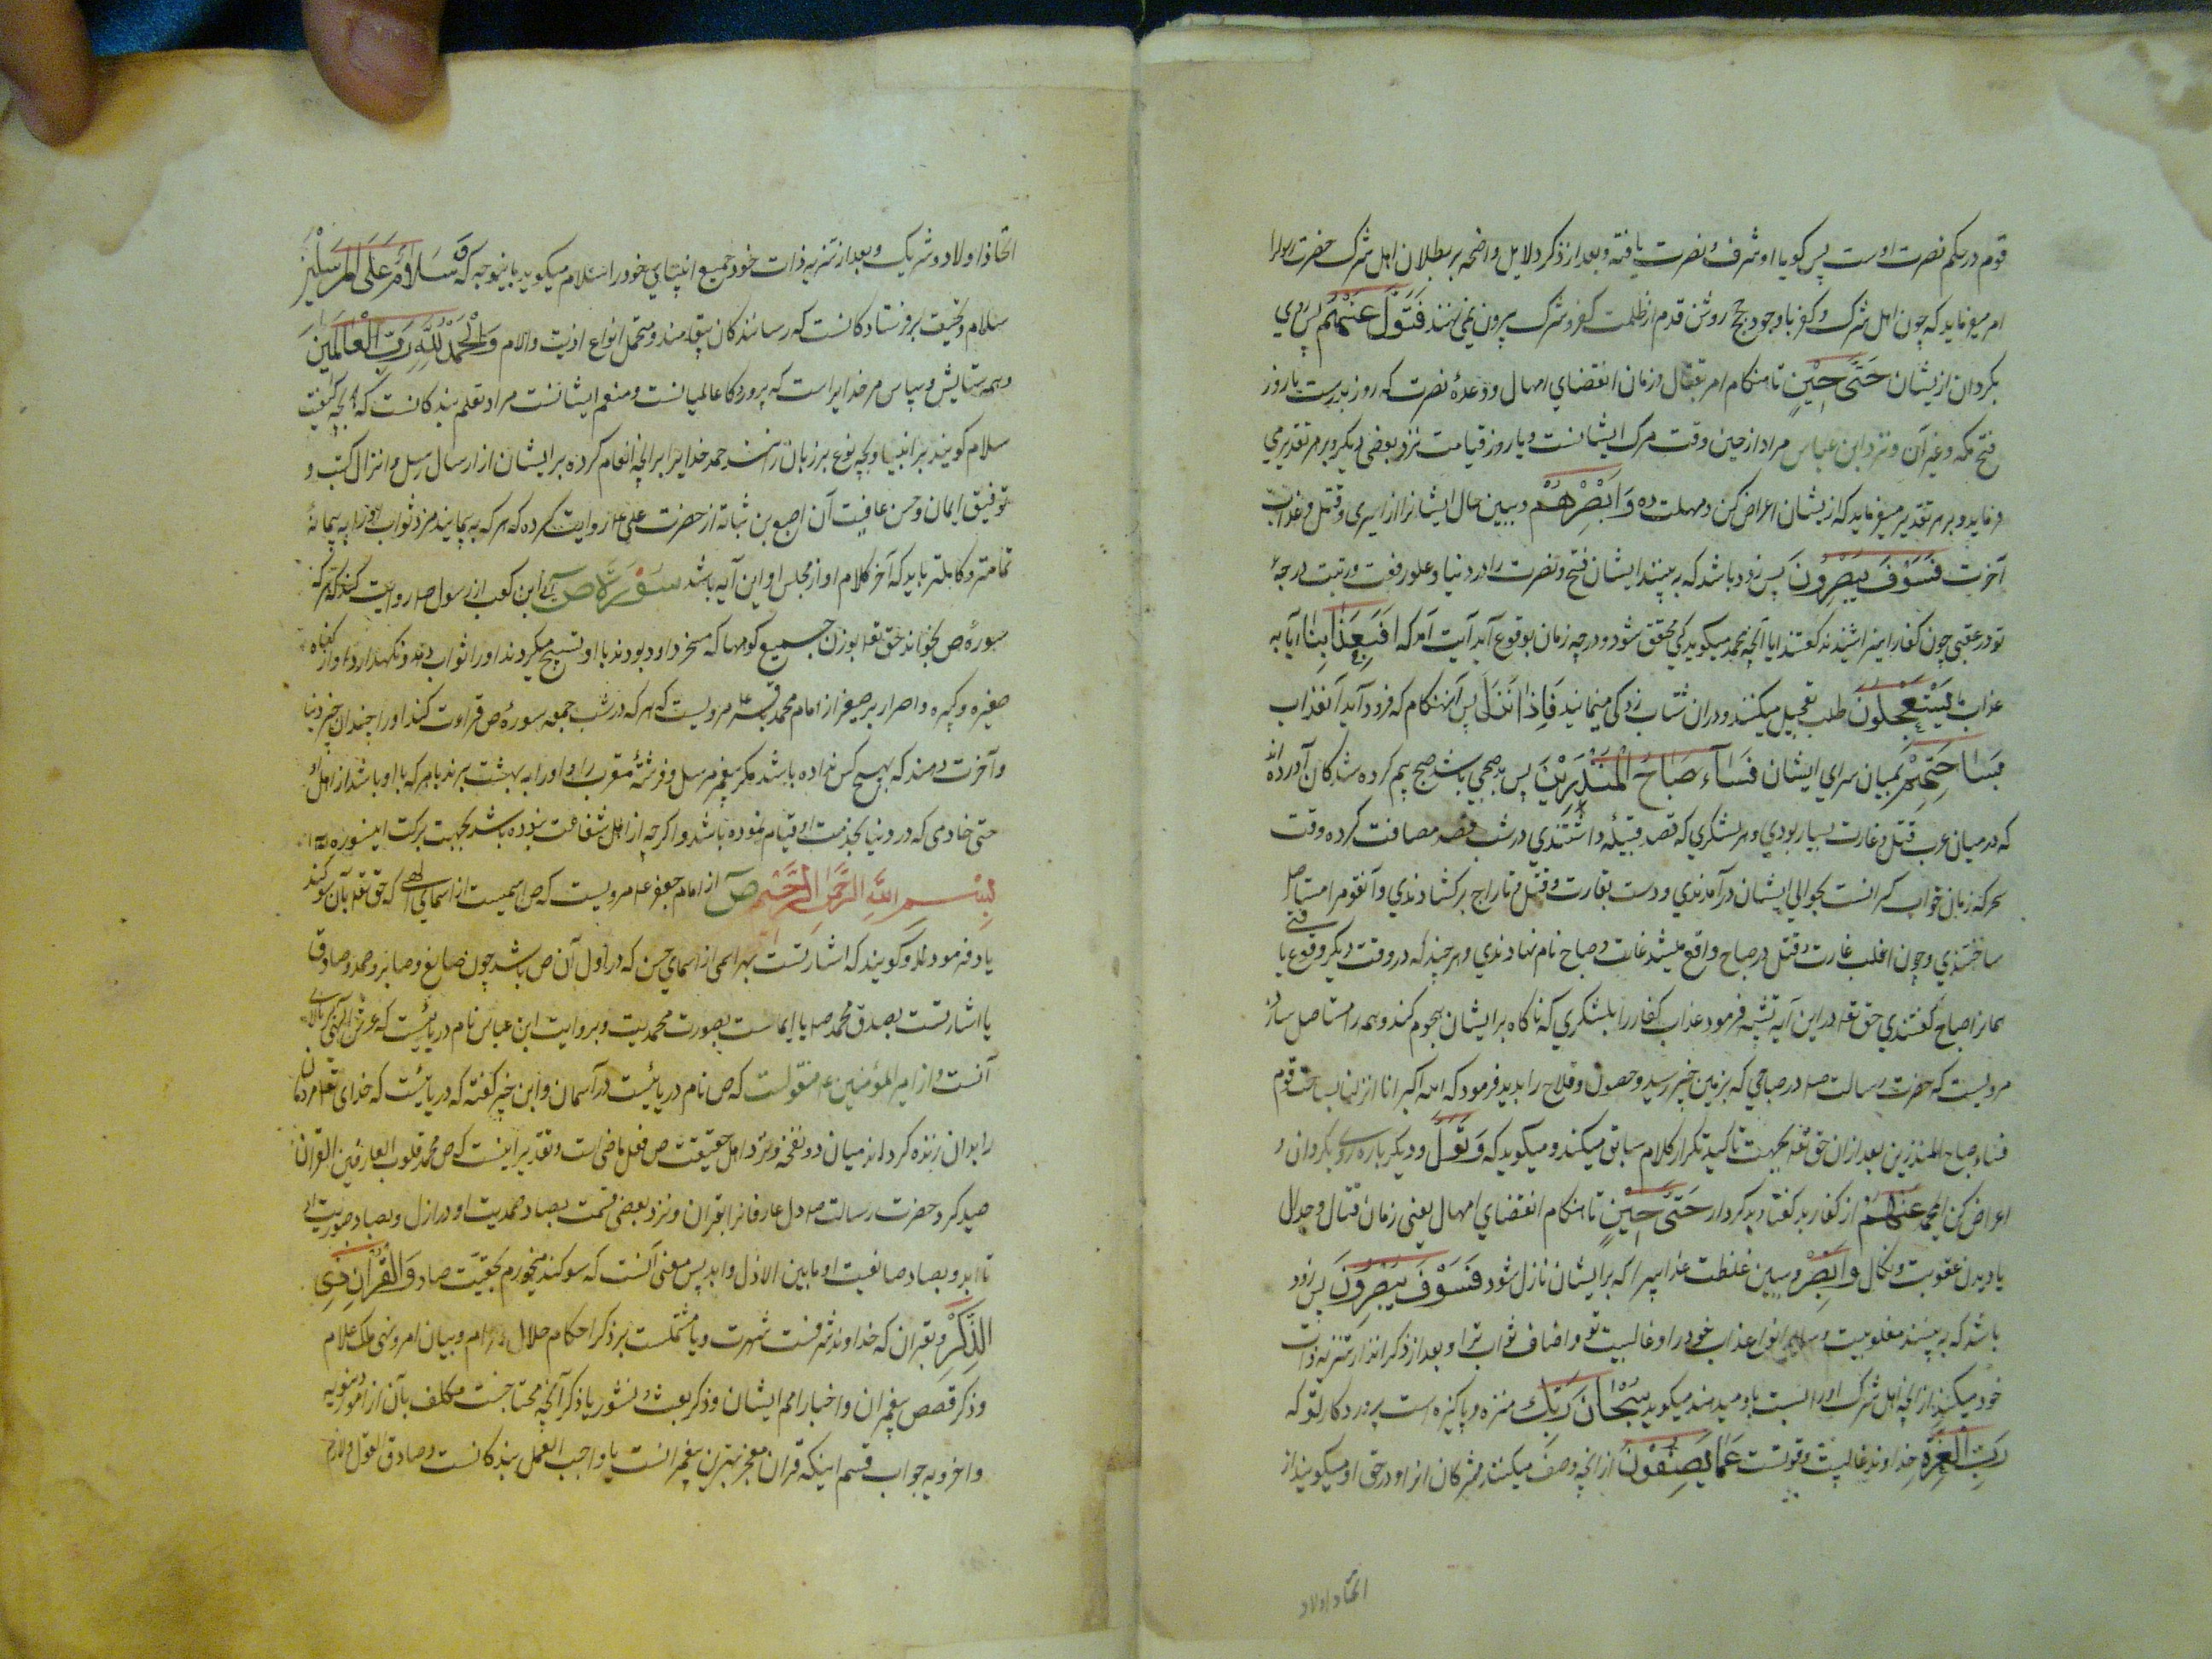 قوم در حکم نصرت اوست پس کویا او شرف نصرت یافته و بعد از ذکر دلایل واضحه بر بطلان اهل شرک حضرت رسول را
امر میفرماید که چون اهل شرک و کفر با وجود حجج روشن قدم از ظلمت کفر و شرک بیرون نمی نهند فَتَوَلَّ عَنْهُمْ پس روی
بکردان از یشان حَتّٰی حِیْنٍ تا هنکام امر بقتال و زمان انقضای امهال و وعدهٔ نصرت که روز بدرست یا روز
فتح مکه و غیر آن و نزد ابن عباس مراد از حین وقت مرک ایشانست و یا روز قیامت نزد بعضی دیکر و بر هر تقدیر می
فرماید و بر هر تقدیر میفرماید که از یشان اعراض کن و مهلت ده وَاَبْصِرْهُمْ و ببین حال ایشانرا از اسیری و قتل و عذاب
آخرت فَسَوْفَ یُبْصِرُونَ پس زود باشد که به بینند ایشان فتح و نصرت را در دنیا و علو رفعت و رتبت درجهٔ
تو در عقبی چون کفار اینرا شنیدند کفتند ایا آنچه محمد میکوید کی محقق شود و در چه زمان بوقوع آید آیت آمد که اَفَبِعَذَابِنَا آیا به
عذاب ما یَسْتَعْجِلُونَ طلب تعجیل میکنند و دران شتاب زدکی مینمایند فَاِذَا نَزَلَ پس آنهنکام که فرود آید آنعذاب
بِسَاحَتِهِمْ بمیان سرای ایشان فَسَآءَ صَبَاحُ الْمُنْذَرِیْنَ پس بد صبحی باشد صبح بیم کرده شدکان آورده اند
که در میان عرب قتل و غارت بسیار بودی و هر لشکری که قصد قبیلهٔ داشتندی در شب قصد مصافت کرده وقت
سحر که زمان خواب کرانست بحوالی ایشان در آمدندی و دست بغارت و قتل و تاراج برکشادندی و آنقوم را مستاصل
ساختندی و چون اغلب غارت و قتل در صباح واقع میشد غارت و صباح نام نهادندی و هر چند که در وقت دیکر وقوع یافتی
همانرا صباح کفتندی حق تعه در این آیه تشبیه فرمود عذاب کفار را بلشکری که ناکاه بر ایشان هجوم کند و همه را مستاصل سازد
مرویست که حضرت رسالت صه در صباحی که بزمین خیبر رسید و حصون و قلاع را بدید فرمود که الله اکبر انا اذا نزلنا بساحة قوم
فساء صباح المنذرین بعد ازان حق تعه بجهت تاکید تکرار کلام سابق میکند و میکوید که وَتَوَلَّ و دیکر باره روی بکردان و
اعراض کن ای محمد عَنْهُمْ از کفار بد کفتار بد کردار حَتّٰی حِیْنٍ تا هنکام انقضای امهال یعنی زمان قتال و جدال
یا دیدن عقوبت و نکال وَاَبْصِرْ و ببین غلظت عذابیرا که بر ایشان نازل شود فَسَوْفَ یُبْصِرُونَ پس زود
باشد که به بینند مغلوبیت و سایر انواع عذاب خود را و غالبیت تو و اضعاف ثواب ترا و بعد از ذکر انذار تنزیه ذات
خود میکند از آنچه اهل شرک او را نسبت باو میدهند میکوید سُبْحَانَ رَبِّكَ منزه و پاکیزه است پروردکار تو که
رَبِّ الْعِزَّةِ خداوند غالبیت و قوتست عَمَّا یَصِفُونَ از آنچه وصف میکنند مشرکان انرا و در حق او میکویند از
اتخاذ اولاد
اتخاذ اولاد و شریک و بعد از تنزیه ذات خود جمیع انبیای خود را سلام میکوید باینوجه که وَسَلَامٌ عَلَی الْمُرْسَلِیْنَ
سلام و تحیت بر فرستادکانست که رسانندکان پیغامند و متحمل انواع اذیت و آلام وَالْحَمْدُ لِلّٰهِ رَبِّ الْعَالَمِیْنَ
و همه ستایش و سپاس مر خدایراست که پروردکار عالمیانست و منعم ایشانست مراد تعلیم بندکانست که بچه کیفیت
سلام کویند بر انبیا و بچه نوع بر زبان رانند حمد خدایرا بر آنچه انعام کرده بر ایشان از ارسال رسل و انزال کتب و
توفیق ایمان و حسن عاقبت آن اصبع بن نباته از حضرت علی ع روایت کرده که هر که به پیماید مزد ثواب خود را به پیمانهٔ
تمامتر و کاملتر باید که آخر کلام او از مجلس او این آیه باشد سُوْرَةُ صٓ ابی ابن کعب از رسول صه روایت کند که هر که
سورهٔ ص بخواند حق تعه بوزن جمیع کوهها که مسخر داود بودند با او تسبیح میکردند او را ثواب دهد و نکهدارد او را از کناه
صغیره و کبیره و اصرار بر صغیر از امام محمد باقر ع مرویست که هر که در شب جمعه سورهٔ ص قراءت کند او را چندان خیر دنیا
و آخرت دهند که بهیچ کس نداده باشد مکر پیغمبر مرسل و فرشتهٔ مقرب را و او را به بهشت برند با هر که با او باشد از اهل او
حتی خادمی که در دنیا بخدمت او قیام نموده باشد و اکرچه از اهل شفاعت نبوده باشد بجهت برکت اینسوره
بِسْمِ اللّٰهِ الرَّحْمٰنِ الرَّحِیْمِ صٓ از امام جعفر ع مرویست که ص اسمیست از اسمای الهی که حق تعه بآن سوکند
یاد فرمود و کویند که اشارتست بهر اسمی از اسمای حسن که در اول آن ص باشد چون صانع و صابر و صمد و صادق
یا اشارتست بصدق محمد صه یا ایماست بصورت محمدیت و بروایت ابن عباس نام دریائیست که عرش الهی بر بالای
آنست و از امیر المؤمنین ع منقولست که ص نام دریائیست در آسمان و ابن جبیر کفته که دریائیست که خدای تعه مردمان
را بدان زنده کرداند میان دو نفخه و نزد اهل حقیقت ص فعل ماضی است و تقدیر اینست که ص محمد قلوب العارفین القران
صید کرد حضرت رسالت صه دل عارفانرا بقران و نزد بعضی قسمت بصاد صمدیت او در ازل و بصاد صوریت او
تا ابد و بصاد صانعیت او ما بین الازل و ابد پس معنی آنست که سوکند میخورم بحقیت صاد وَالْقُرْاٰنِ ذِی
الذِّکْرِ و بقران که خداوند شرفست شهرت و یا مشتملست بر ذکر احکام حلال و حرام و بیان امر و نهی ملک علام
و ذکر قصص پیغمبران و اخبار امم ایشان و ذکر بعث و نشور یا ذکر آنچه محتاجست مکلف بآن از امور دنیویه
و اخرویه جواب قسم اینکه قران معجز بهترین پیغمبرانست یا واجب العمل بندکانست و صادق القول و لازم